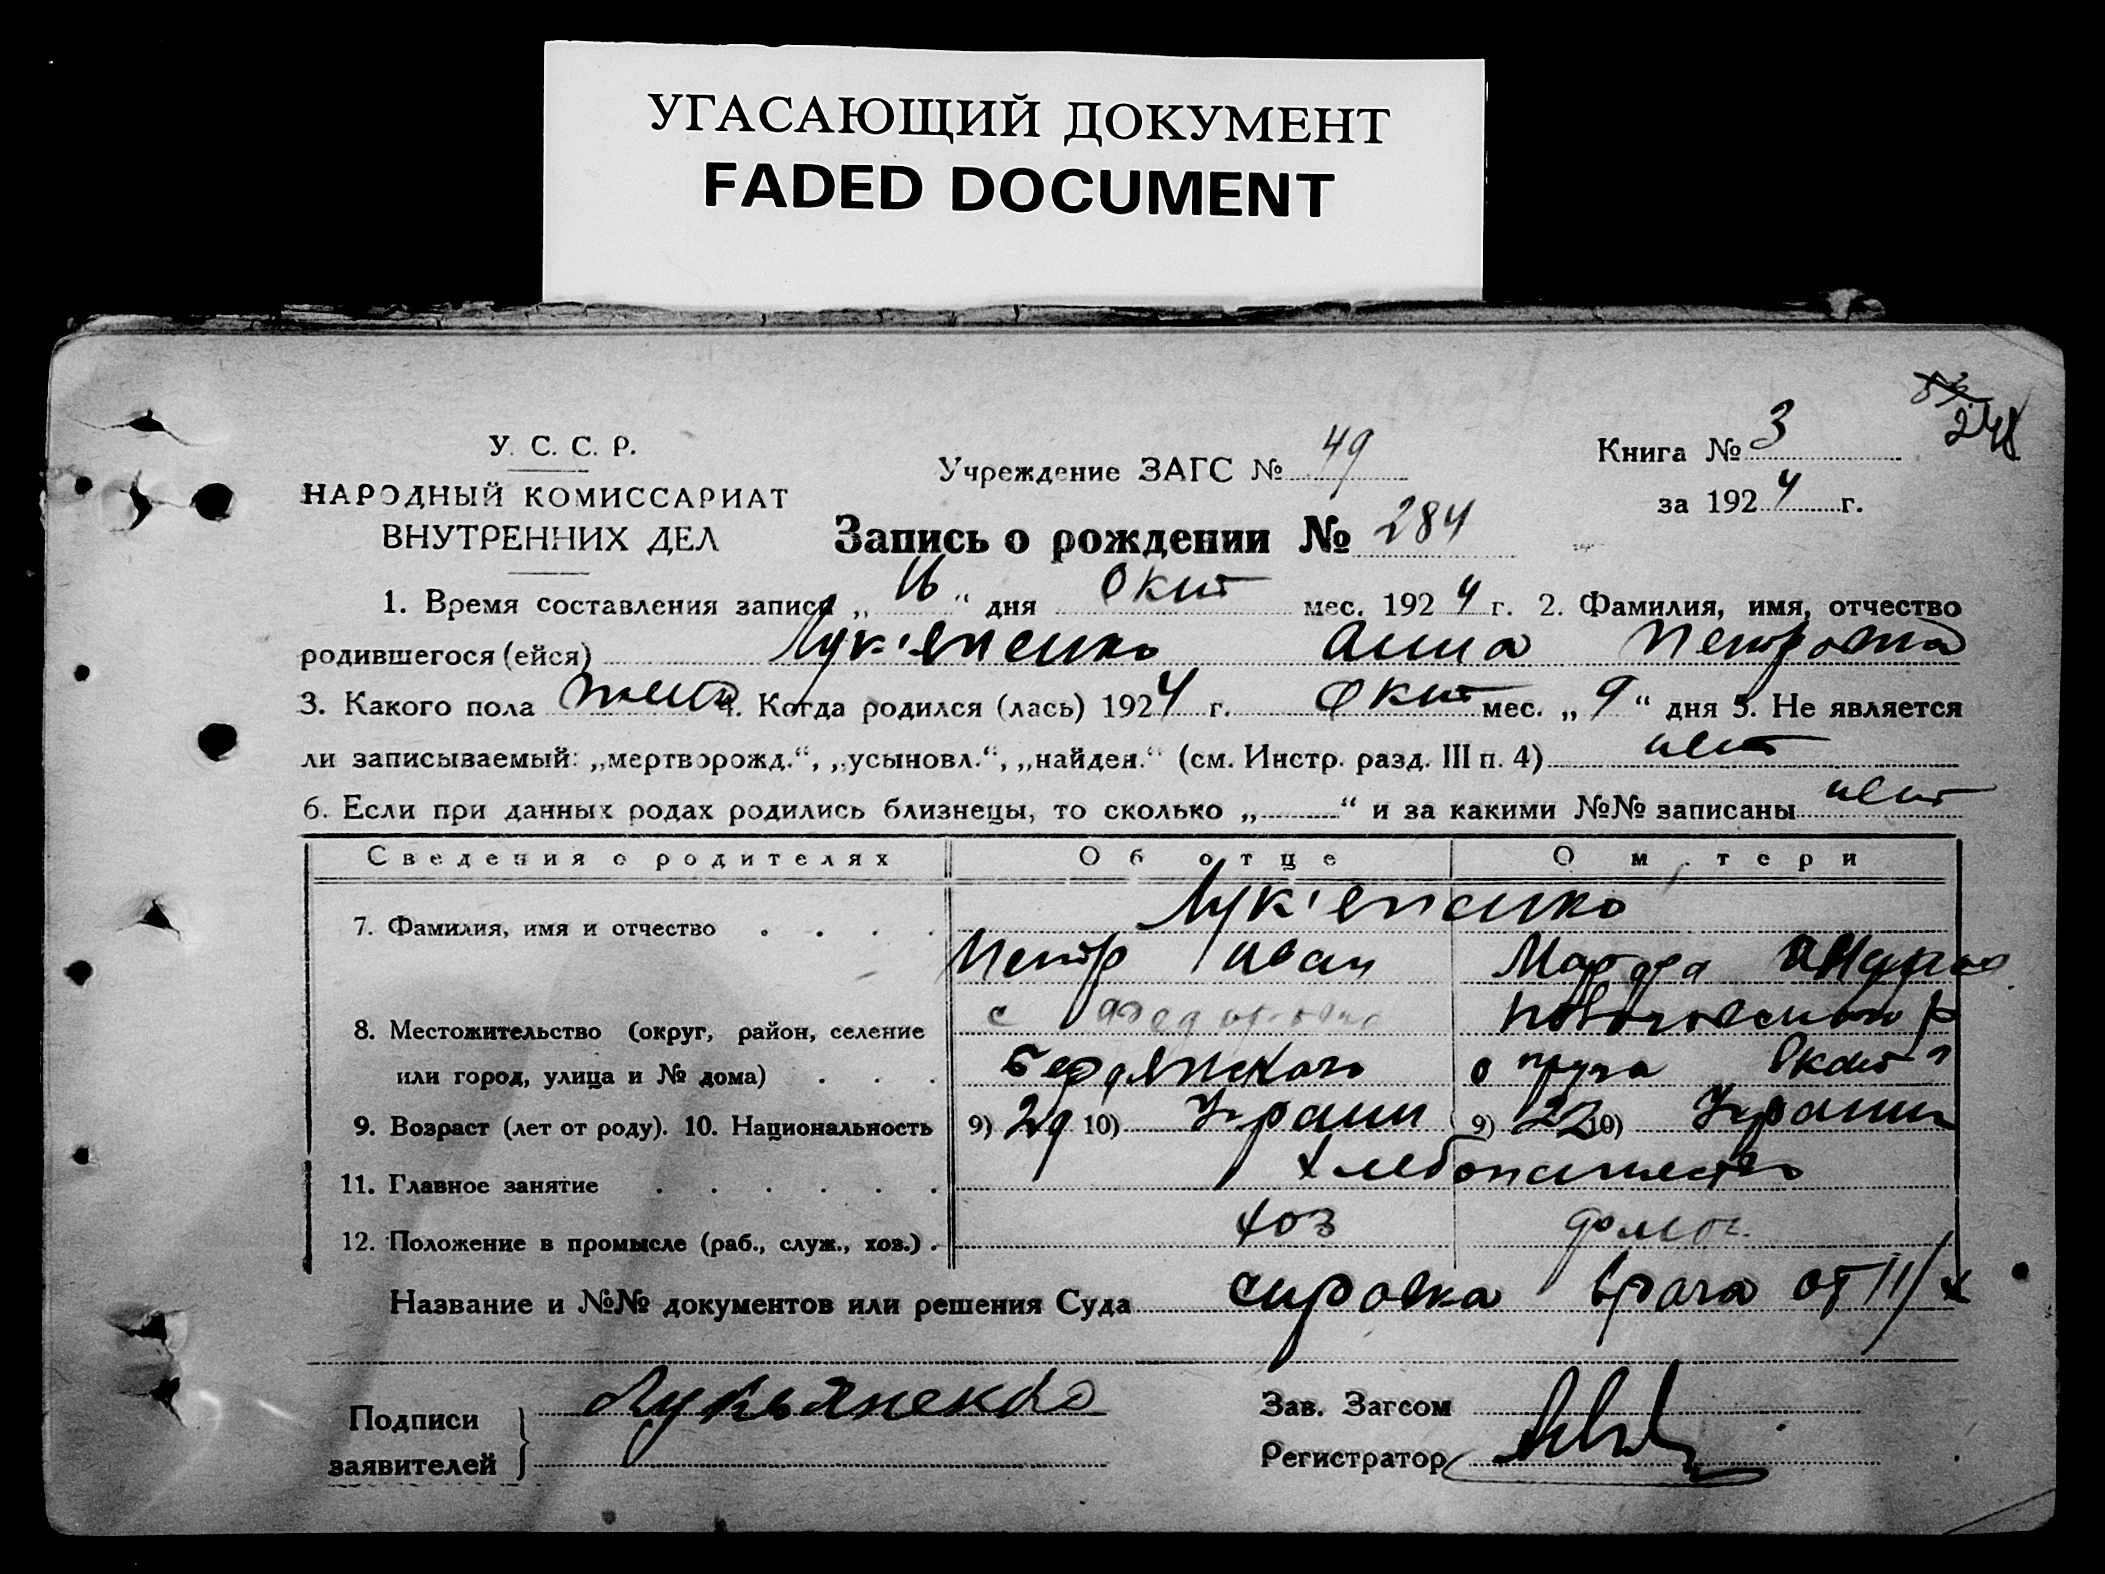 УГАСАЮЩИЙ ДОКУМЕНТ
FADED DOCUMENT
248
У. С. С. Р.
НАРОДНЫЙ КОМИССАРИАТ
ВНУТРЕННИХ ДЕЛ
Учреждение ЗАГС № 49
Книга № 3
за 1924 г.
Запись о рождении № 284
1. Время составления записи „16“ дня Окт мес. 1924 г. 2. Фамилия, имя, отчество
родившегося (ейся) Лук'яненко Анна Петровна
3. Какого пола жен 4. Когда родился (лась) 1924 г. Окт мес. „9“ дня 5. Не является
ли записываемый: „мертворожд.“, „усыновл.“, „найден.“ (см. Инстр. разд. III п. 4) нет
6. Если при данных родах родились близнецы, то сколько „ “ и за какими №№ записаны нет
Сведения о родителях Об отце О матери
7. Фамилия, имя и отчество Лук'яненко
Петр Иван Марфа Андрее
8. Местожительство (округ, район, селение с
или город, улица и № дома) Бердянского округа
9. Возраст (лет от роду). 10. Национальность 9) 29 10) Украин 9) 22 10) Украин
11. Главное занятие Хлебопашество
12. Положение в промысле (раб., служ., хоз.) хоз домог.
Название и №№ документов или решения Суда справка врача от 11/X
Подписи заявителей Лукьяненко
Зав. Загсом
Регистратор